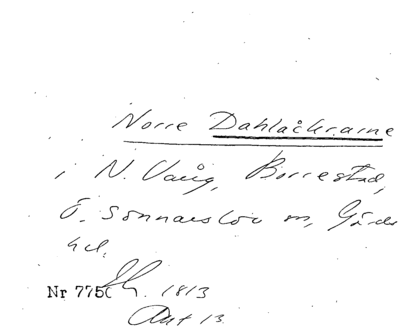 Norre Dahlåckrarne
i N. Vång, Borrestad,
Ö. Sönnarslöv sn, Gärds
hd.
Nr 775 Sk. 1813
Akt 13